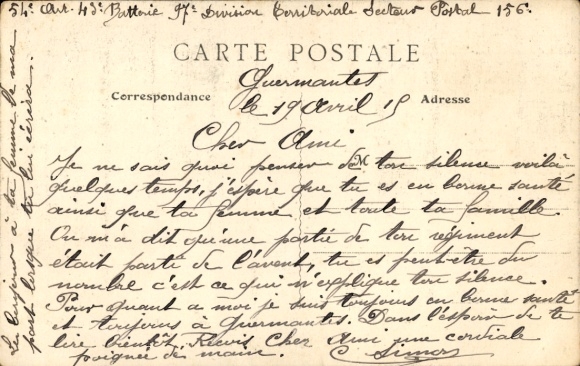 54e Art. 43e Batterie 97e Division Territoriale Secteur Postal 156
CARTE POSTALE
Guermantes
Correspondance
le 19 Avril 15
Adresse
Cher Ami
Je ne sais quoi penser de ton silence voilà
quelques temps, j'espère que tu es en bonne santé
ainsi que ta femme et toute ta famille.
On m'a dit qu'une partie de ton régiment
était partie de l'avant, tu es peut-être du
nombre c'est ce qui m'explique ton silence.
Pour quant a moi je suis toujours en bonne santé
et toujours à Guermantes. Dans l'espoir de te
lire bientôt Reçois Cher Ami une cordiale
poignée de main. C. Simon
bonjour à ta femme de ma
part lorsque tu lui écrira.